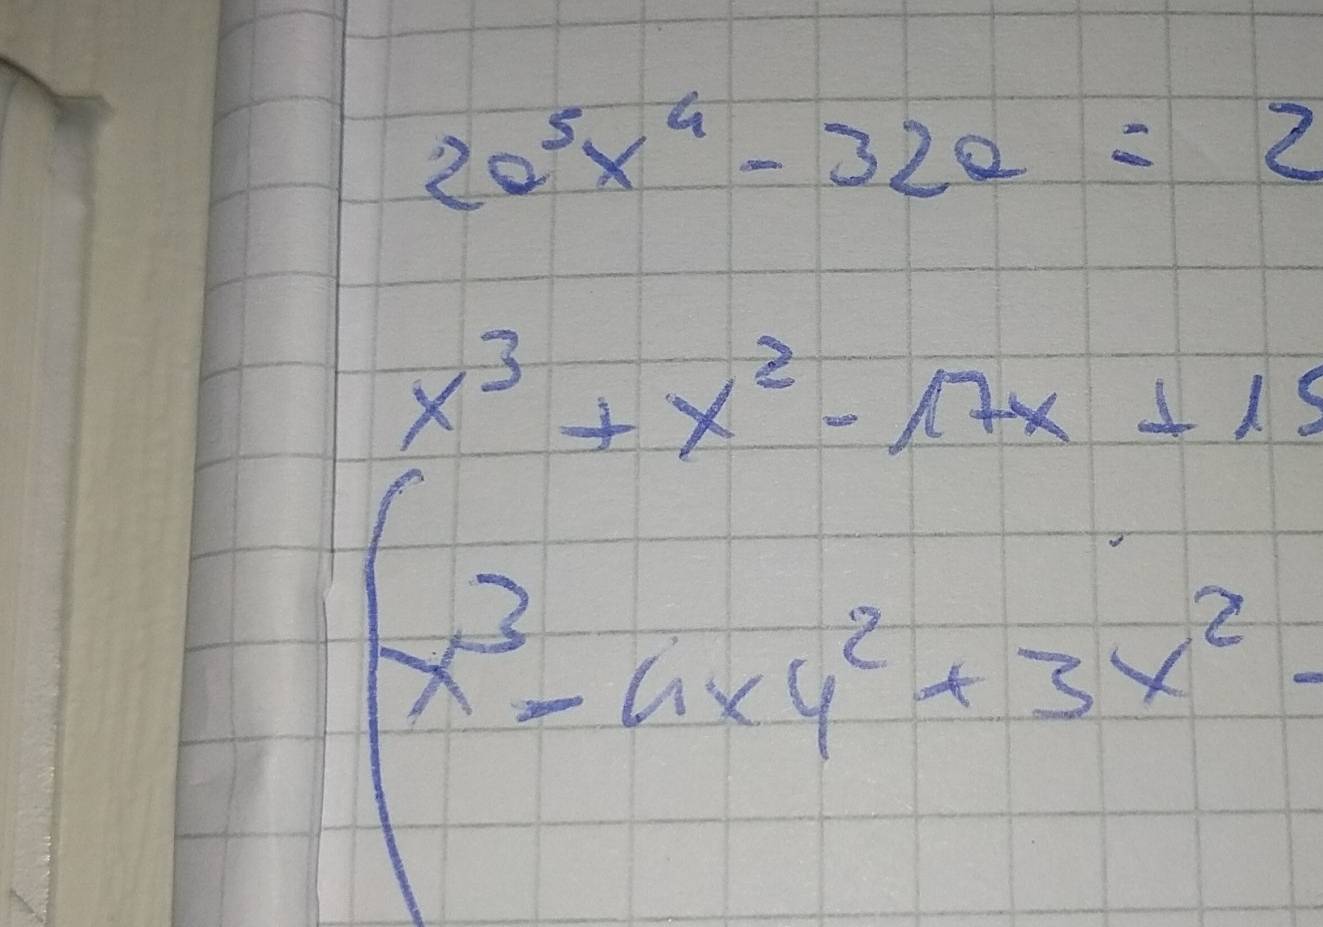 2a⁵x⁴ - 32a = 2
x³ + x² - 17x + 15
x³ - 4xy² + 3x² -